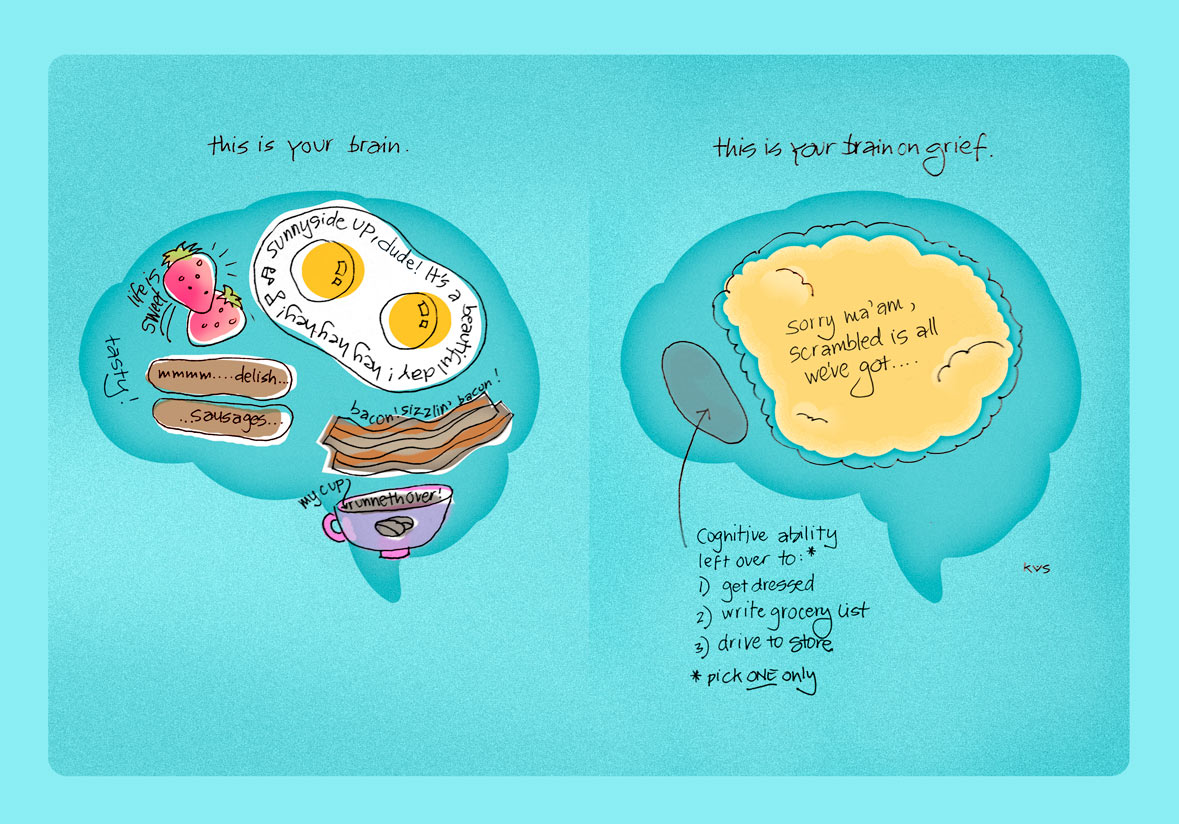 this is your brain.
sunnyside up, dude! It's a beautiful day! hey hey hey!
life is
sweet
tasty!
mmmm....delish...
...sausages...
bacon! sizzlin' bacon!
my cup
runneth over!
this is your brain on grief.
sorry ma'am,
scrambled is all
we've got....
Cognitive ability
left over to:*
1) get dressed
2) write grocery list
3) drive to store
* pick ONE only
kvs